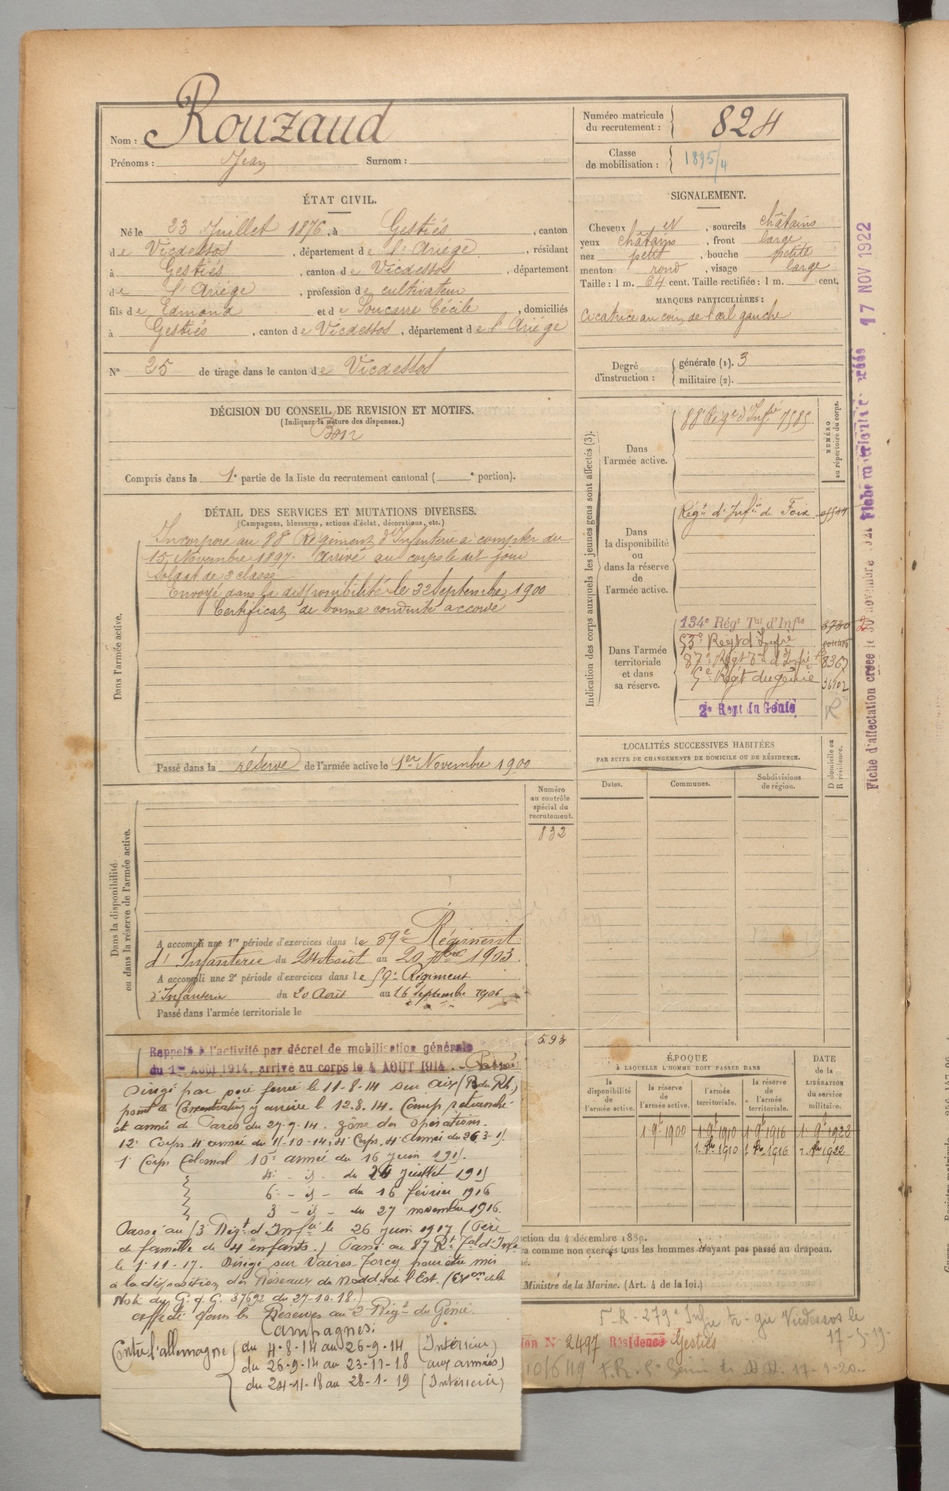 Nom : Rouzaud
Prénoms : Jean Surnom :
Numéro matricule du recrutement : 824
Classe de mobilisation : 1895/4
ÉTAT CIVIL.
Né le 23 Juillet 1876, à Gestiés, canton
de Vicdessos, département de l'Ariège, résidant
à Gestiés, canton de Vicdessos, département
de l'Ariège, profession de cultivateur
fils d'Edmond et de Cécile, domiciliés
à Gestiés, canton de Vicdessos, département de l'Ariège
N° 25 de tirage dans le canton de Vicdessos
SIGNALEMENT.
Cheveux N, sourcils châtains
yeux châtains, front large
nez petit, bouche petite
menton rond, visage large
Taille : 1 m. 64 cent. Taille rectifiée : 1 m. cent.
MARQUES PARTICULIÈRES :
Cicatrice au coin de l'œil gauche
Degré d'instruction : générale (1). 3
militaire (2).
DÉCISION DU CONSEIL DE REVISION ET MOTIFS.
(Indiquer la nature des dispenses.)
Bon
Compris dans la 1e partie de la liste du recrutement cantonal ( e portion).
DÉTAIL DES SERVICES ET MUTATIONS DIVERSES.
(Campagnes, blessures, actions d'éclat, décorations, etc.)
Dans l'armée active.
Incorporé au 88e Régiment d'Infanterie à compter du
15 Novembre 1897. Arrivé au corps le dit jour
Soldat de 2e classe
Envoyé dans la disponibilité le 22 Septembre 1900
Certificat de bonne conduite accordé
Passé dans la réserve de l'armée active le 1er Novembre 1900
Indication des corps auxquels les jeunes gens sont affectés (3).
NUMÉRO au répertoire du corps.
Dans l'armée active.
88e Régt d'Infie 7585
Dans la disponibilité ou dans la réserve de l'armée active.
Régt d'Infie de Foix
Dans l'armée territoriale et dans sa réserve.
134e Régt Tal d'Infie
53e Regt d'Infie
87e Régt Tal d'Infie 8367
5e Régt du génie
2e Regt du Génie
LOCALITÉS SUCCESSIVES HABITÉES
PAR SUITE DE CHANGEMENTS DE DOMICILE OU DE RÉSIDENCE.
Dates. Communes. Subdivisions de région. D domicile ou R résidence.
Fiche d'affectation créée le 30 novembre
Fiche matricule créée 17 NOV 1922
Dans la disponibilité ou dans la réserve de l'armée active.
Numéro au contrôle spécial du recrutement.
132
A accompli une 1re période d'exercices dans le 59e Régiment
d'Infanterie du 24 Août au 20 7bre 1903
A accompli une 2e période d'exercices dans le 59e Régiment
d'Infanterie du 20 Août au 16 Septembre 1906
Passé dans l'armée territoriale le
593
Rappelé à l'activité par décret de mobilisation générale
du 1er AOUT 1914, arrivé au corps le 4 AOUT 1914. Passé
Dirigé par voie ferrée le 11-8-14 sur Aix (B. du Rh.)
point de Concentration y arrive le 12.8.14. Camp retranché
et armée de Paris du 27-9-14. Zône des Opérations.
12e Corps 4e armée du 11-10-14; 4e Corps, 4e Armée du 26-3-15
1er Corps Colonial 10e armée du 16 juin 1915.
4 - id - du 24 juillet 1915
6 - id - du 16 février 1916
3 - id - du 27 novembre 1916.
Passé au 53 Régt d'Infie le 26 juin 1917 (Père
de famille de 4 enfants.) Passé au 87 Rt Tal d'Infie
le 1-11-17. Dirigé sur Vaires-Torcy pour être mis
à la disposition des Réseaux du Nord et de l'Est (Exon de la
Note du G.Q.G. 37692 du 27-10-18.)
affecté dans les Réserves au 2 Régt du Génie.
Campagnes:
Contre l'allemagne du 4-8-14 au 26-9-14 (Intérieur)
du 26-9-14 au 23-11-18 (aux armées)
du 24-11-18 au 28-1-19 (Intérieur)
ÉPOQUE
À LAQUELLE L'HOMME DOIT PASSER DANS
la disponibilité de l'armée active. la réserve de l'armée active. l'armée territoriale. la réserve de l'armée territoriale.
DATE de la LIBÉRATION du service militaire.
1 9e 1900 1 9e 1910 1 9e 1916 1 9e 1922
1. 9e 1910 1. 9e 1916 1. 9e 1922
ction du 4 décembre 1889.
ra comme non exercés tous les hommes n'ayant pas passé au drapeau.
Ministre de la Marine. (Art. 4 de la loi.)
F.R. 279e Infie Vicdessos le
17-5-19.
N° 2497 Résidence Gestiés
10/6/19 F.R. 5e Génie 17-1-20